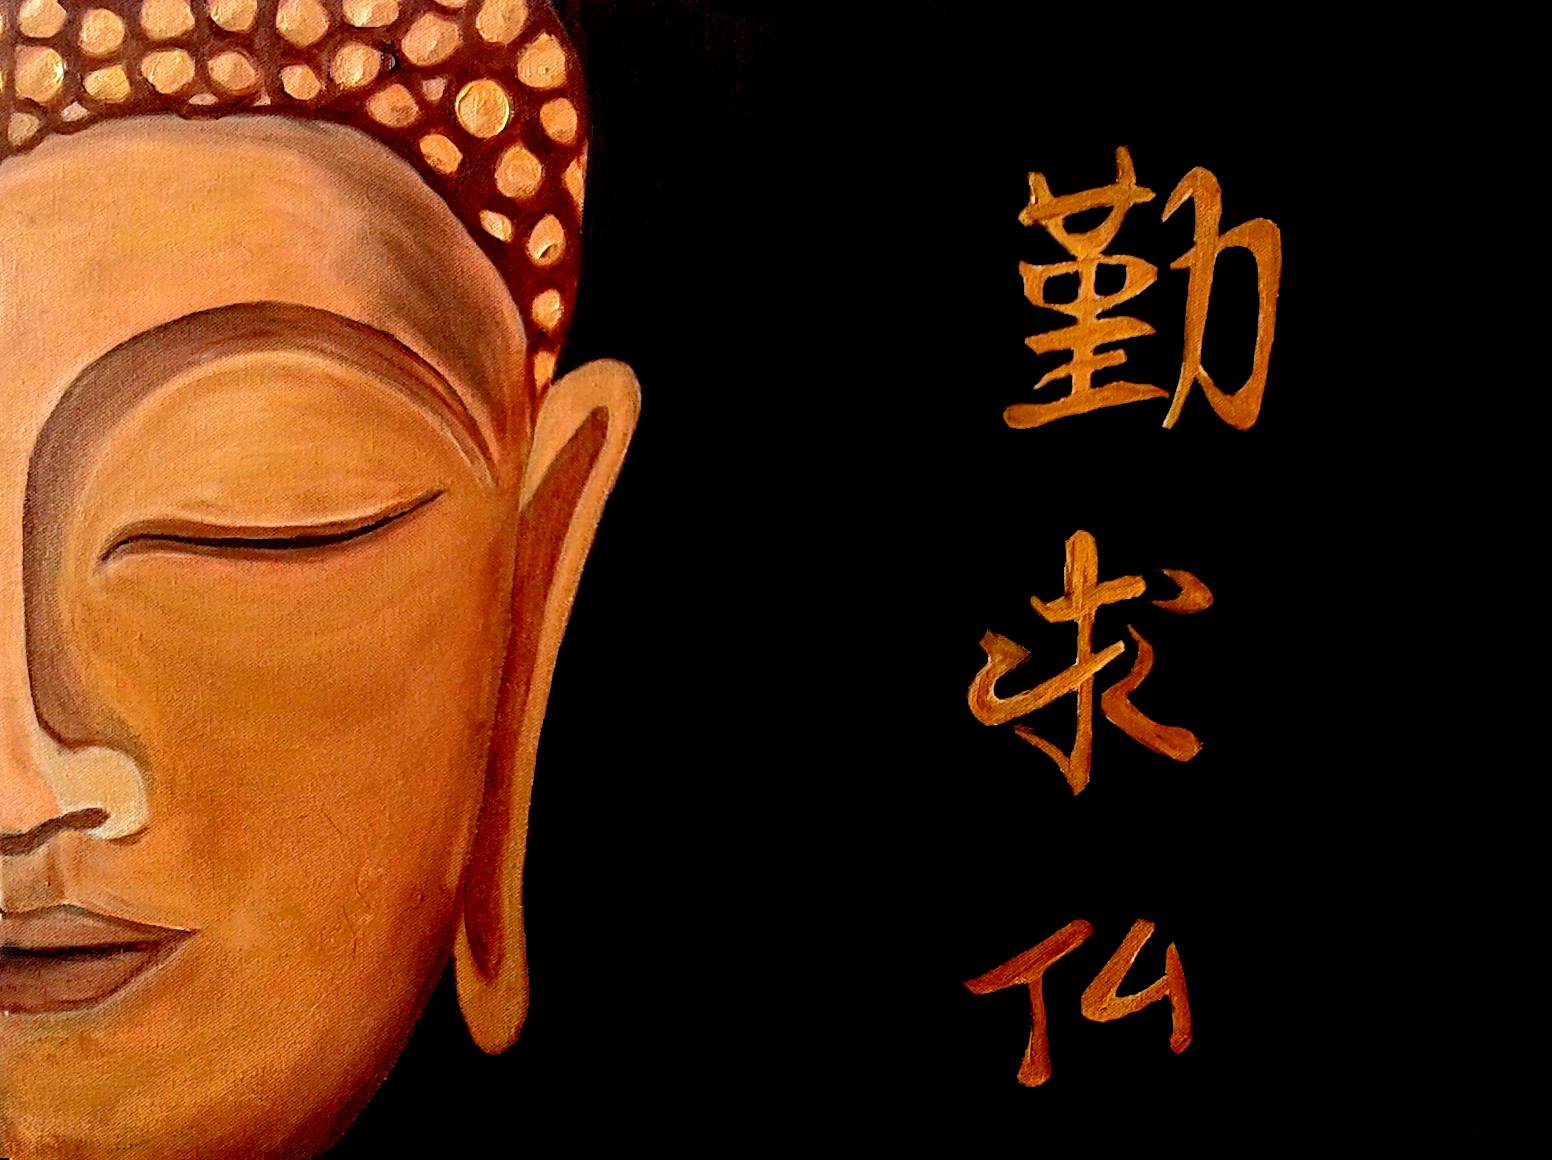 勤求仏